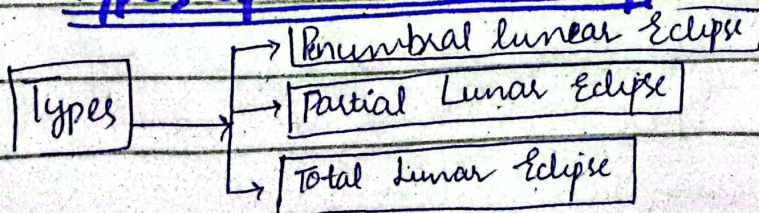 Penumbral lunear Eclipse
Types
Partial Lunar Eclipse
Total Lunar Eclipse